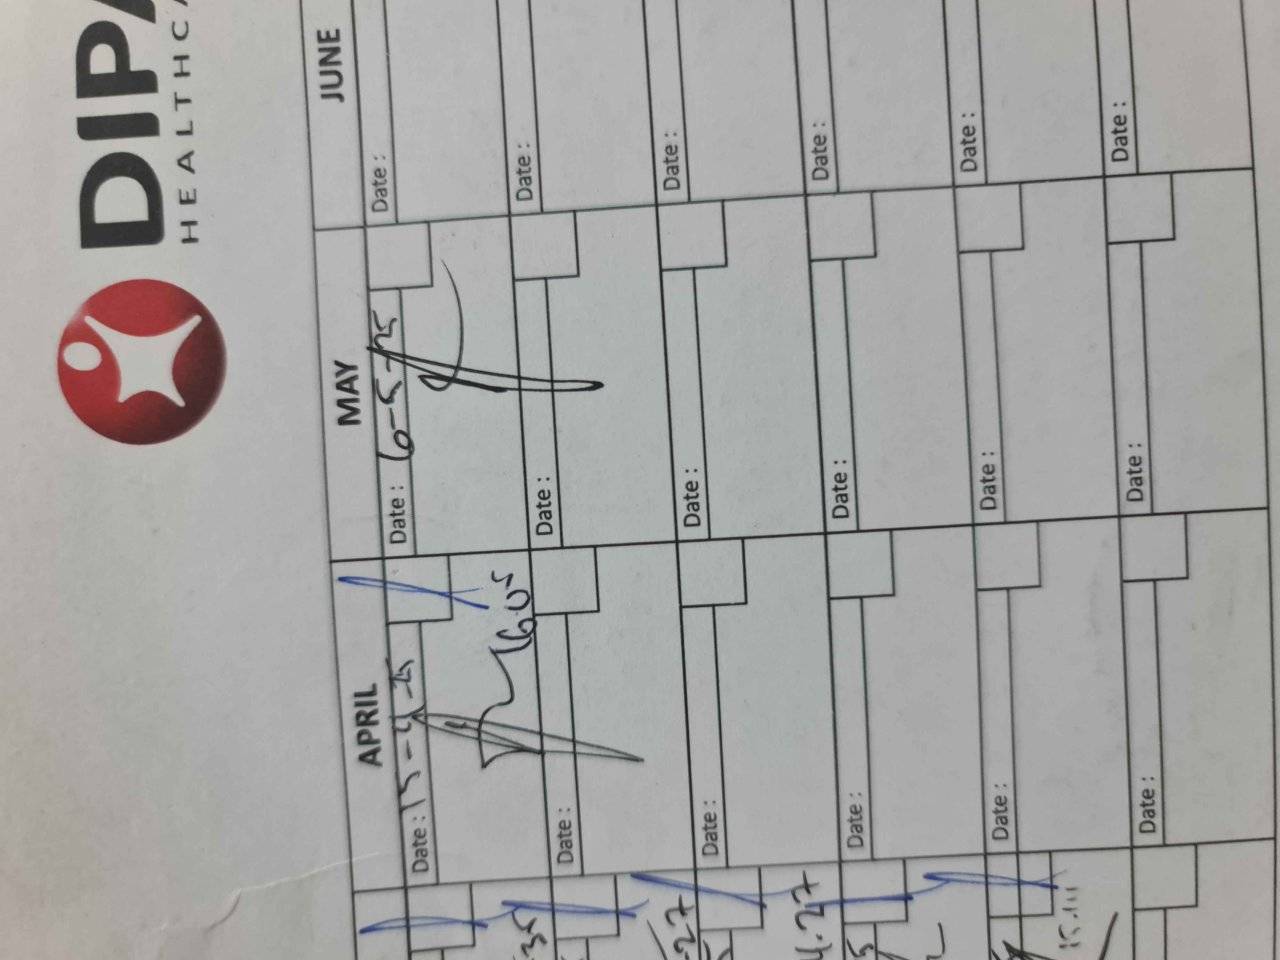 DIPA
HEALTHCA
APRIL MAY JUNE
Date : 15-4-25 Date : 6-5-25 Date :
16.05
Date : Date : Date :
Date : Date : Date :
4.27
Date : Date : Date :
Date : Date : Date :
Date : Date : Date :